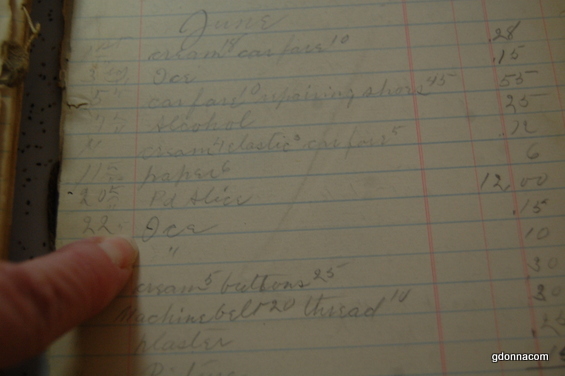 June
cream 18 carfare 10 .28
Ice .15
carfare 10 repairing shoes 45 55
Alcohol 25
cream elastic carfare 5
paper 6 6
20 Pd Alice 12.00
22 Ice .15
" 10
cream 5 buttons 25 30
Machine belt 20 thread 10 30
plaster
gdonnacom